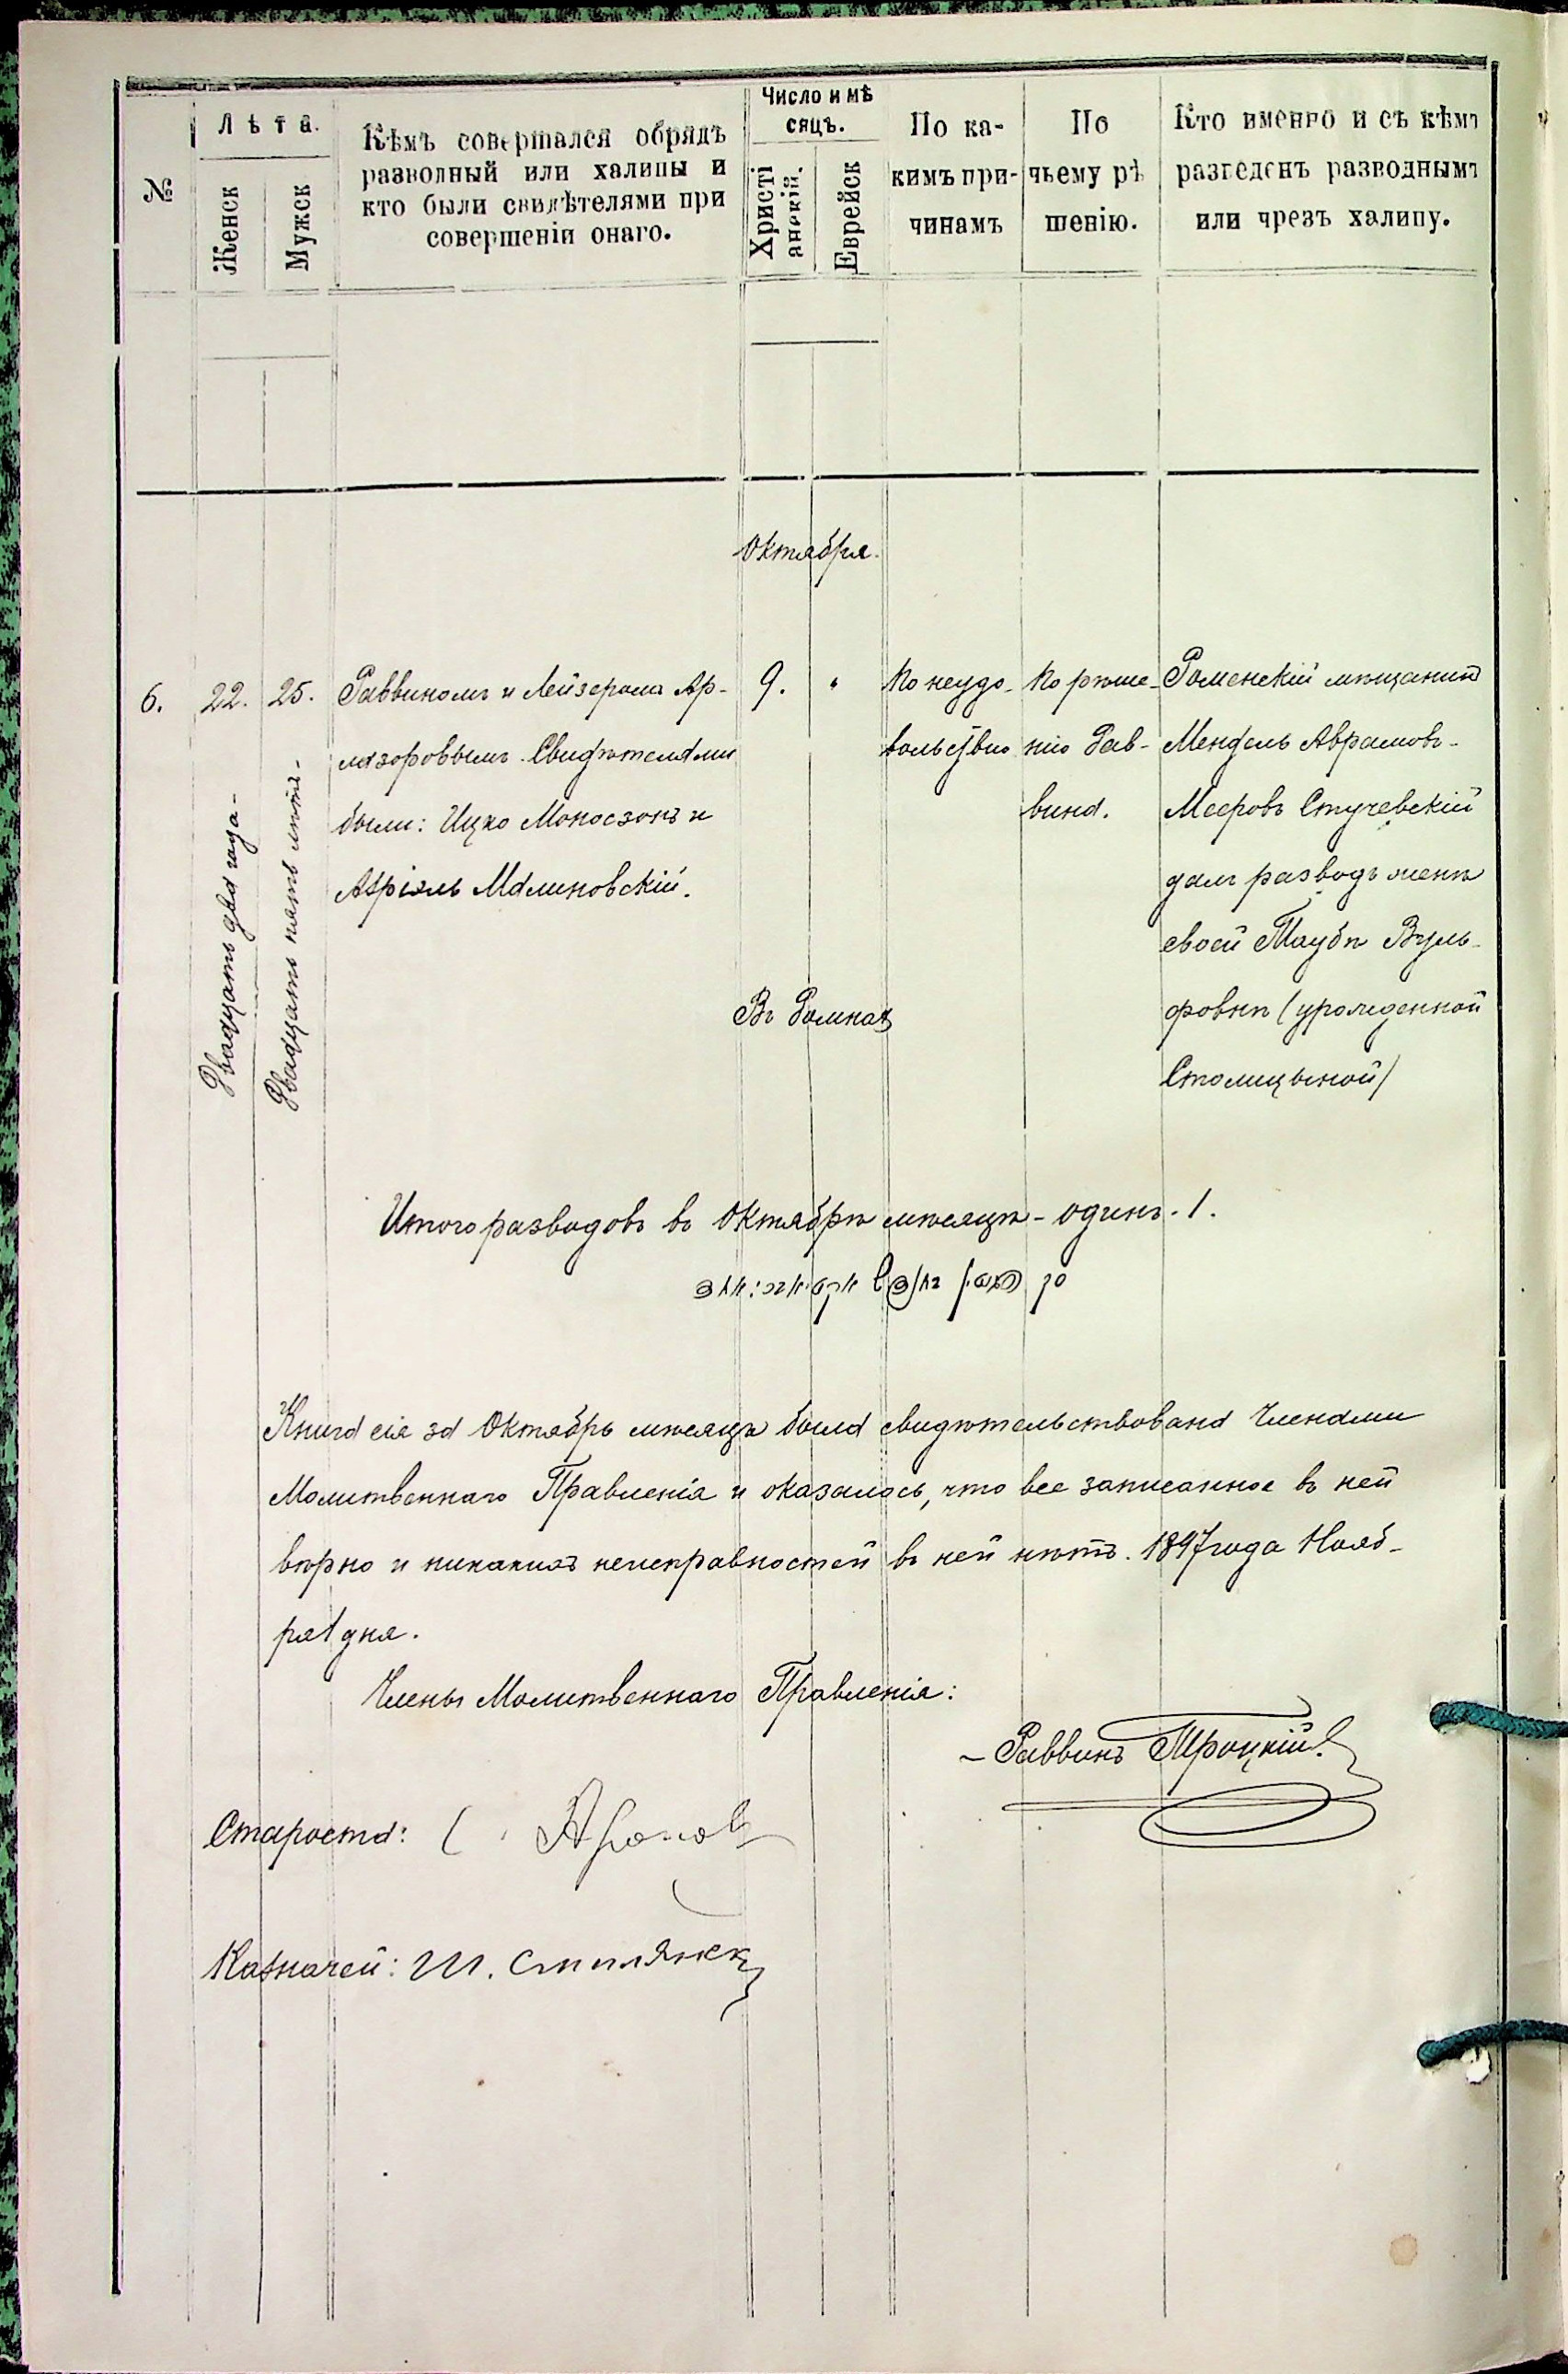 №
Лѣта.
Женск
Мужск
Кѣмъ совершался обрядъ
разводный или халицы и
кто были свидѣтелями при
совершеніи онаго.
Число и мѣ
сяцъ.
Христі
анскій.
Еврейск
По ка-
кимъ при-
чинамъ
По
чьему рѣ
шенію.
Кто именно и съ кѣмъ
разведенъ разводнымъ
или чрезъ халицу.
Октября.
6.
22.
Двадцать два года-
25.
Двадцать пять лѣтъ-
Раввиномъ и Лейзеромъ Ар-
лазоровымъ. Свидѣтелями
были: Ицко Моносзонъ и
Азріэль Малиновскій.
9.
"
Въ Ромнах
По неудо-
вольствію
По рѣше-
нію Рав-
вина.
Роменскій мѣщанинъ
Мендель Аврамовъ-
Мееровъ Стучевскій
далъ разводъ женѣ
своей Таубѣ Вуль-
фовнѣ (урожденной
Столицыной)
Итого разводовъ въ Октябрѣ мѣсяцѣ - одинъ. 1.
Книга сія за Октябрь мѣсяцъ была свидѣтельствована Членами
Молитвеннаго Правленія и оказалось, что все записанное въ ней
вѣрно и никакихъ неисправностей въ ней нѣтъ. 1897 года Нояб-
ря 1 дня.
Члены Молитвеннаго Правленія:
Раввинъ Троцкій
Староста:
Казначей: Ш.